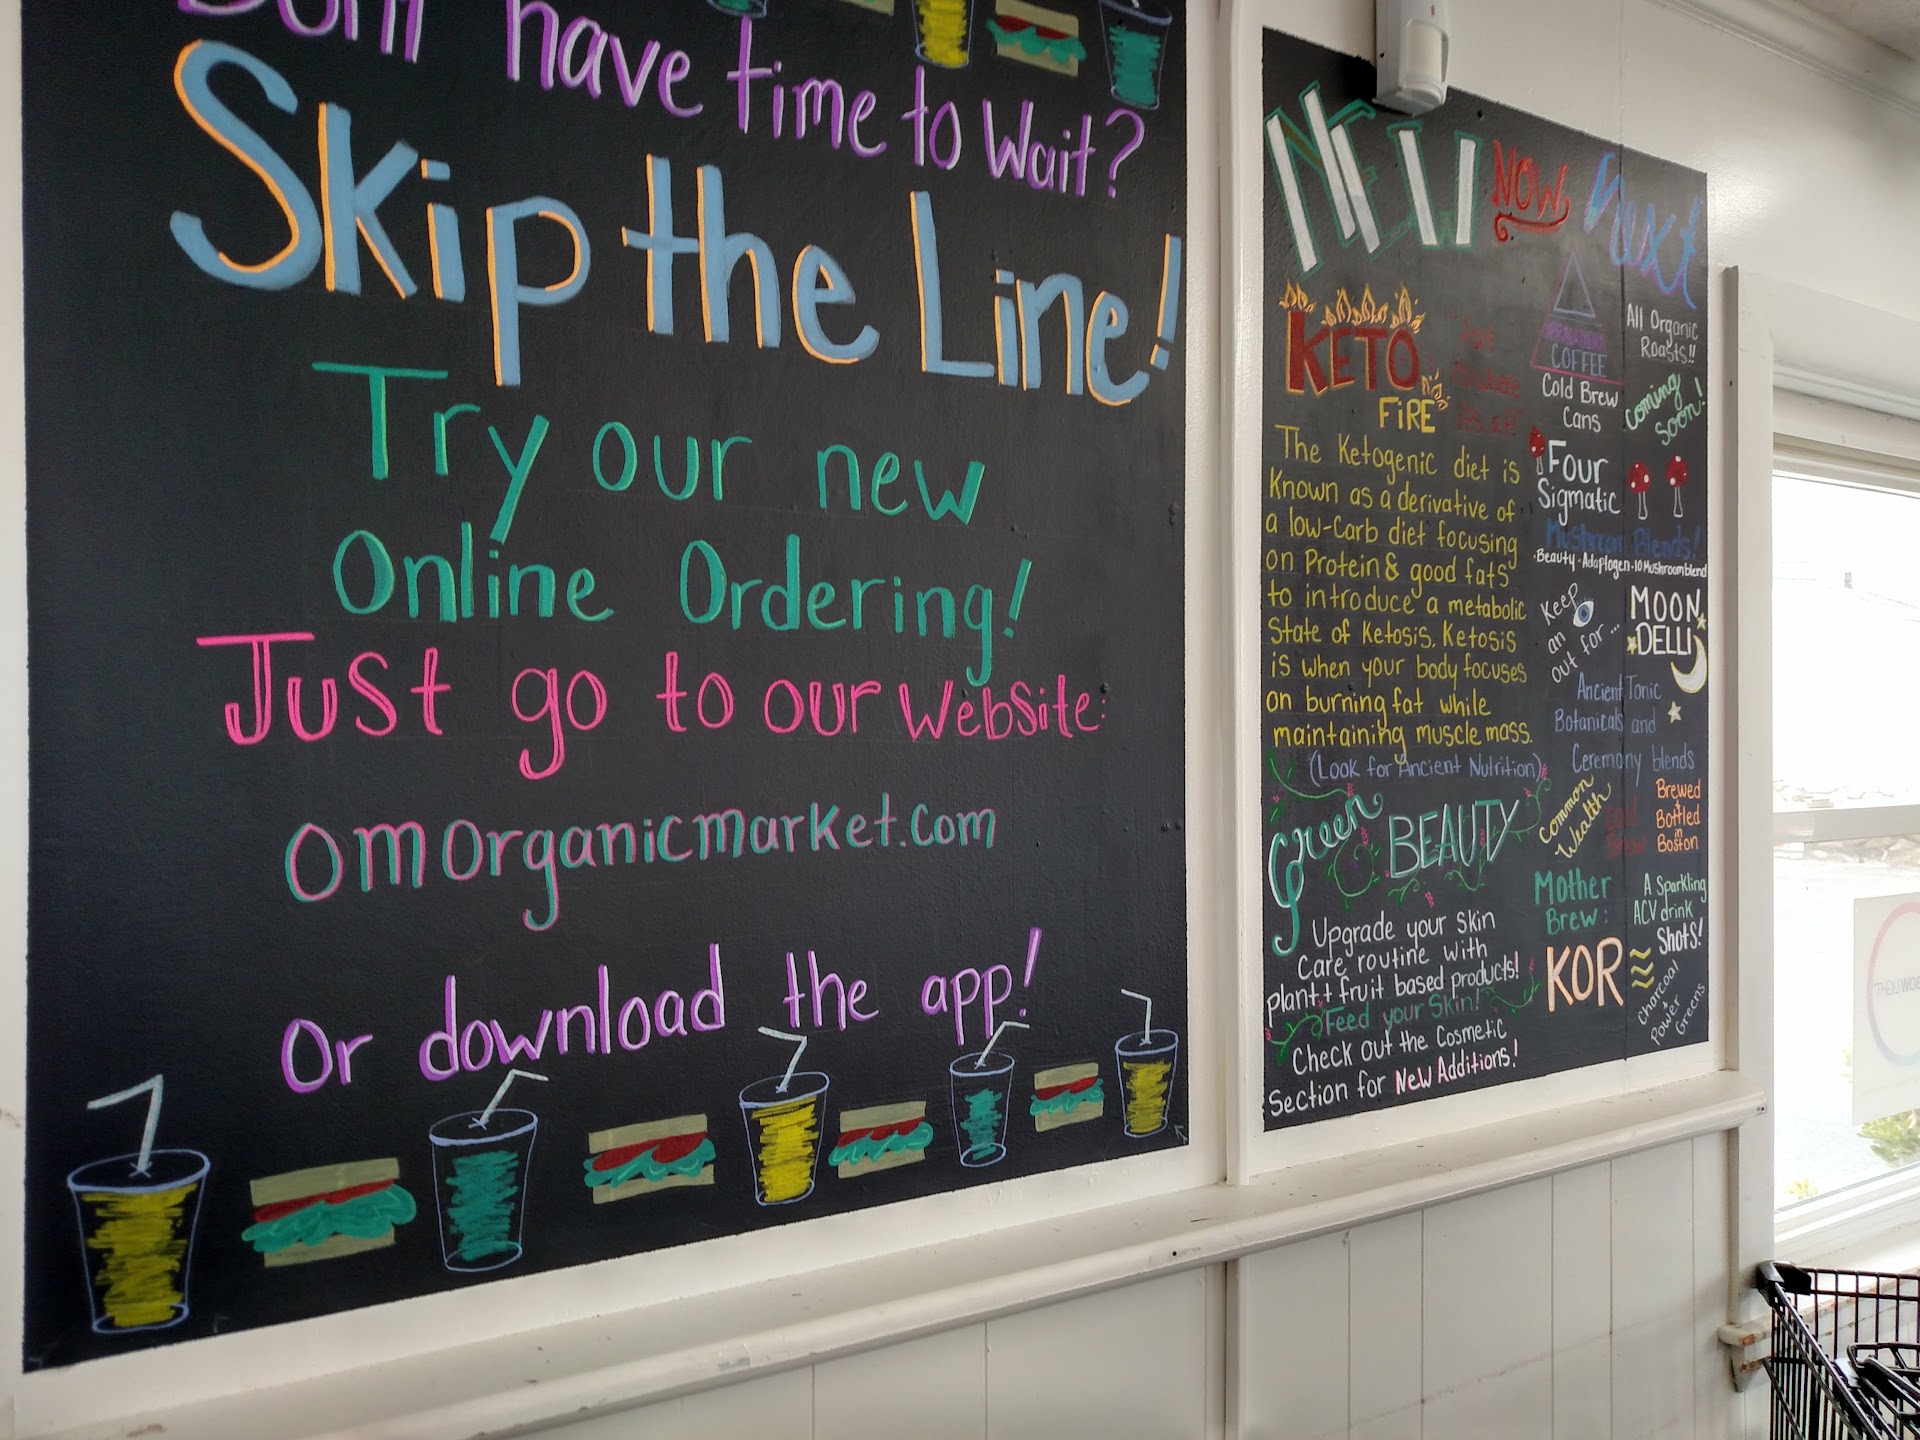 Don't have time to Wait?
Skip the Line!
Try our new
Online Ordering!
Just go to our website:
omorganicmarket.com
Or download the app!
NEW NOW Next
KETO
FiRE
The Ketogenic diet is
Known as a derivative of
a low-carb diet focusing
on Protein & good fats
to introduce a metabolic
State of Ketosis. Ketosis
is when your body focuses
on burning fat while
maintaining muscle mass.
(Look for Ancient Nutrition)
Green BEAUTY
Upgrade your skin
Care routine with
plant + fruit based products!
Feed your Skin!
Check out the Cosmetic
Section for New Additions!
COFFEE
Cold Brew
Cans
All Organic
Roasts!!
Coming
Soon!
Four
Sigmatic
Mushroom Blends!
·Beauty·Adaptogen·10 Mushroom blend
Keep
an
out for...
MOON
DELLI
Ancient Tonic
Botanicals and
Ceremony blends
Common
Wealth
Brewed
+
Bottled
in
Boston
Mother
Brew:
A Sparkling
ACV drink
KOR
Shots!
Charcoal
Power
Greens